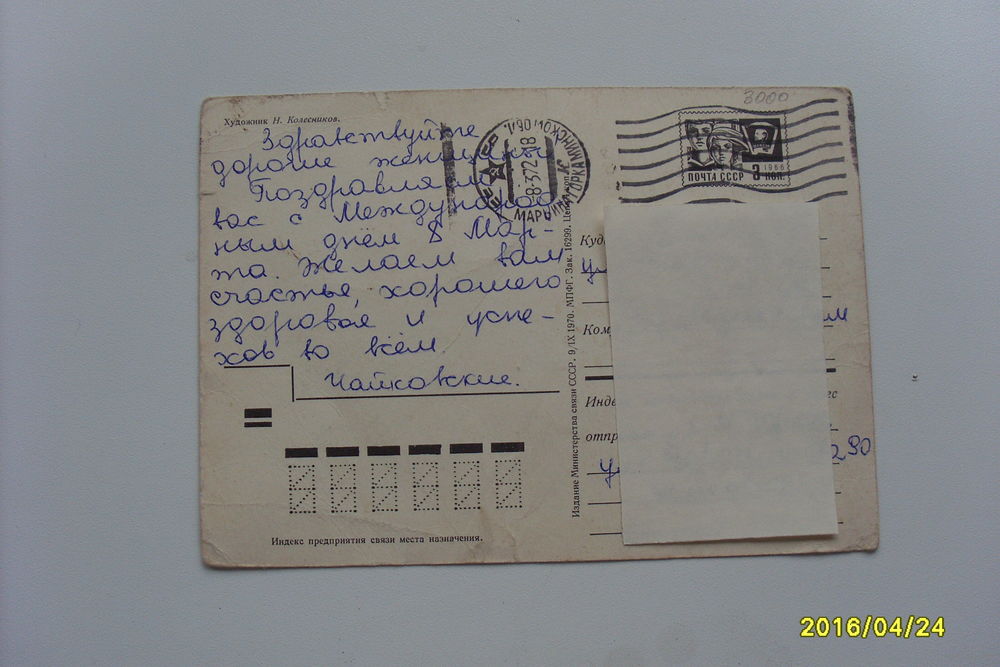 3000
Художник Н. Колесников.
Здравствуйте
дорогие женщины
Поздравляем
вас с Международ
ным днём 8 Мар-
та. Желаем вам
счастья, хорошего
здоровья и успе-
хов во всём.
Чайковские.
МАРЬИНА ГОРКА
8-372 18
ПОЧТА СССР
1966
3 коп.
Куд
ул
Ком
м
Инде
ес
отпр
у
290
Издание Министерства связи СССР. 9/IX 1970. МПФГ. Зак. 16299. Цена коп
Индекс предприятия связи места назначения.
2016/04/24